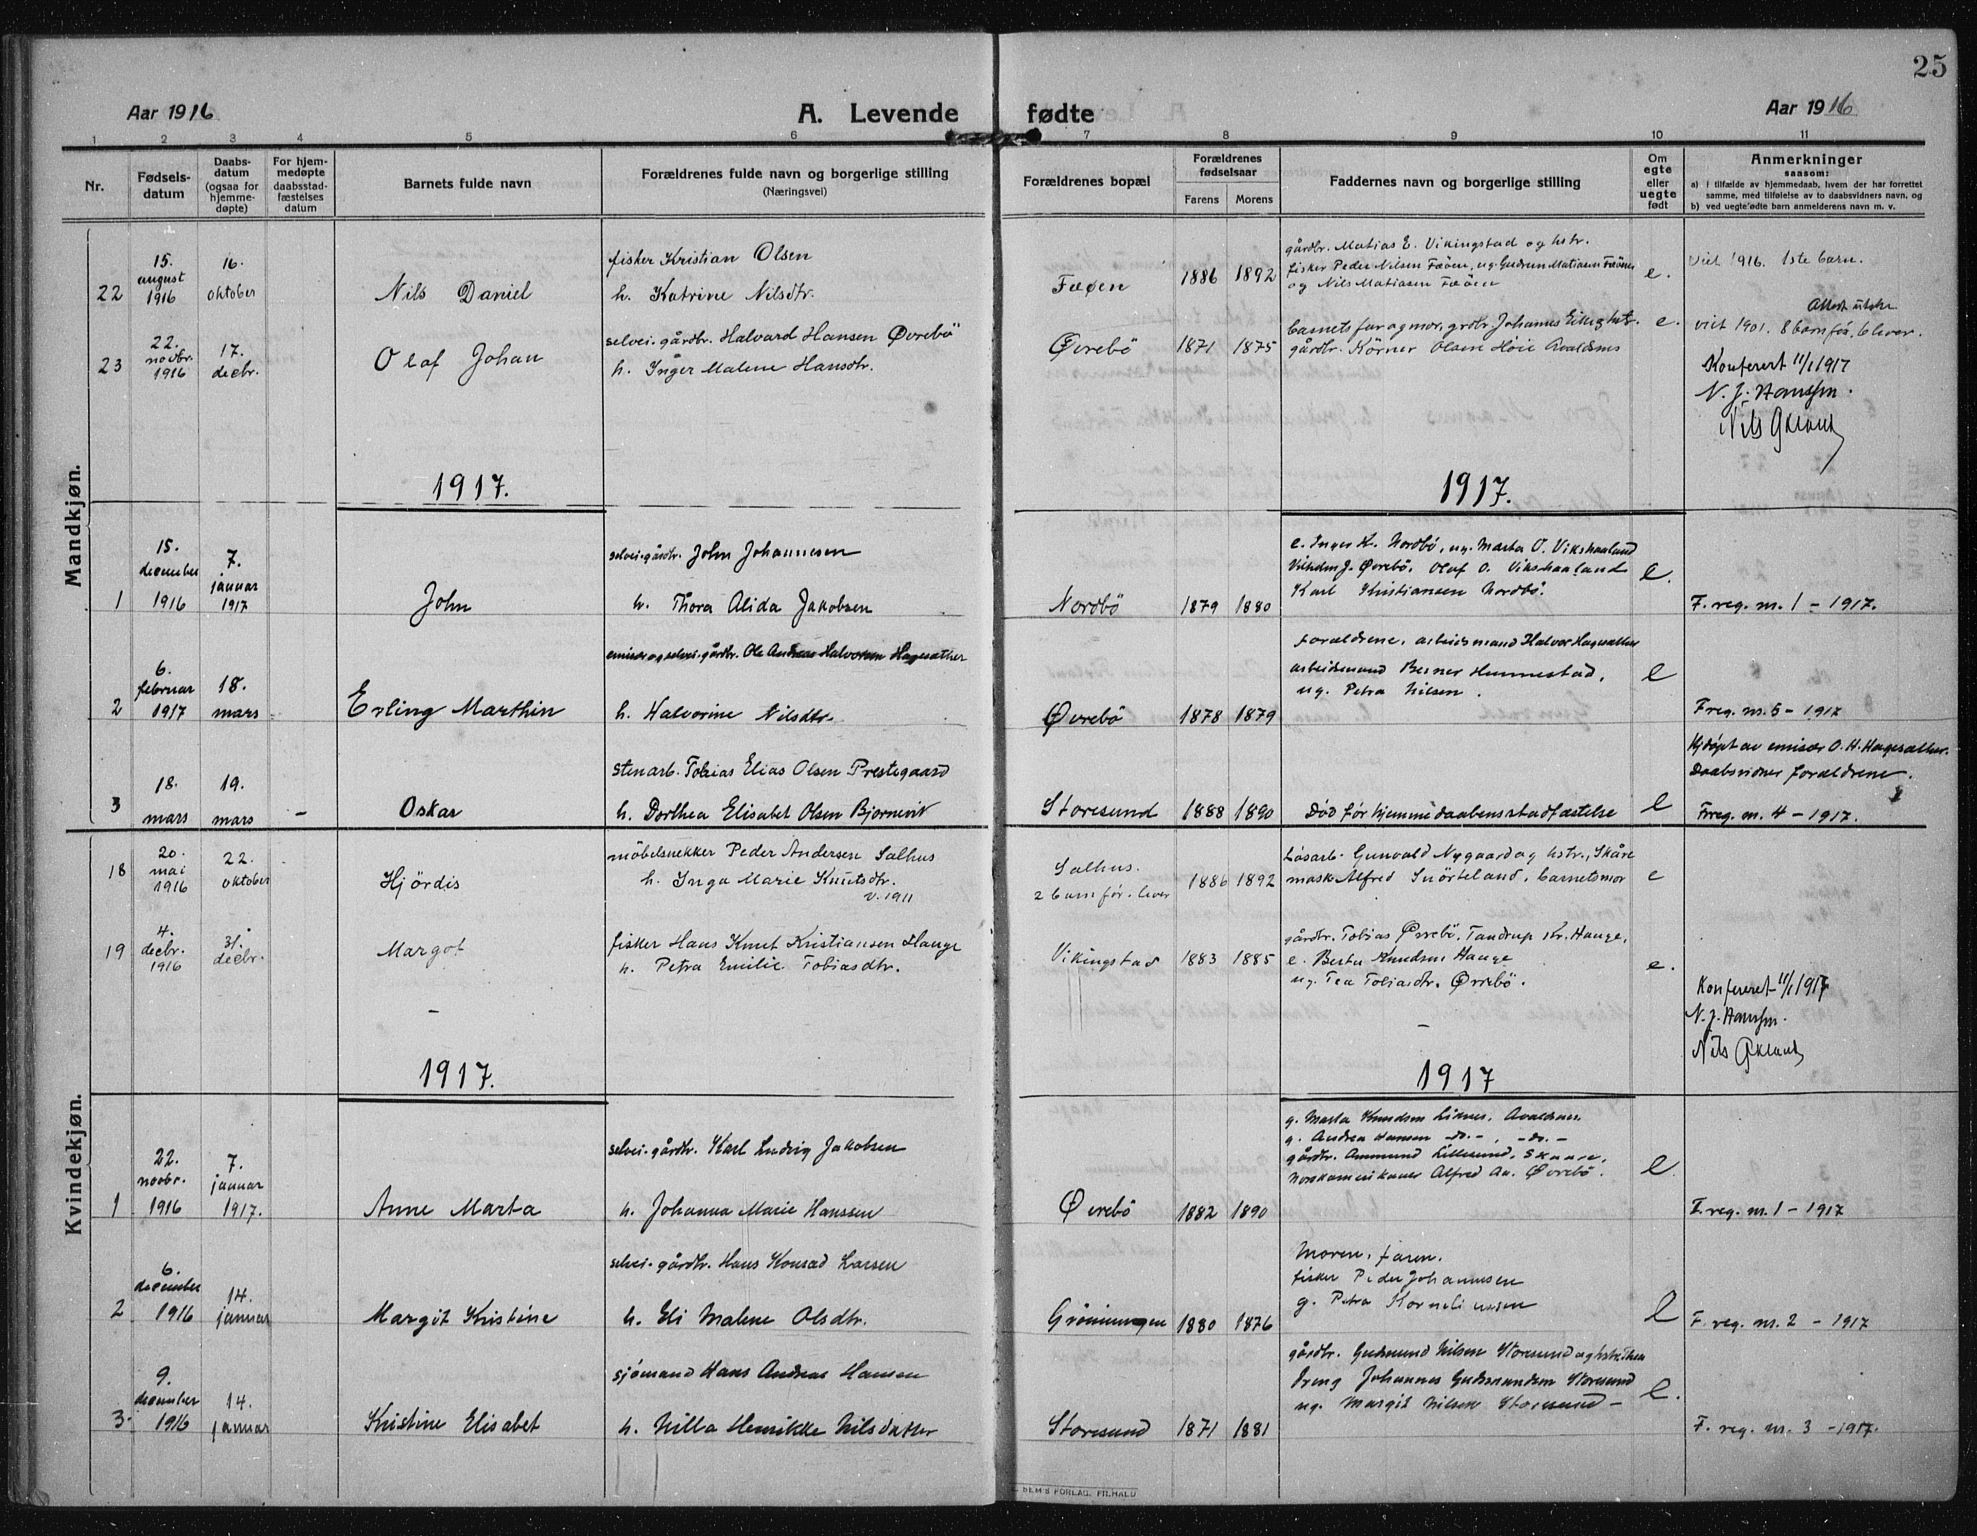 25
Aar 1916
A. Levende fødte
Aar 1916
1 2 3 4 5 6 7 8 9 10 11
Nr.
Fødsels-
datum
Daabs-
datum
(ogsaa for
hjemme-
døpte)
For hjem-
medøpte
daabsstad-
fæstelses
datum
Barnets fulde navn
Forældrenes fulde navn og borgerlige stilling
(Næringsvei)
Forældrenes bopæl
Forældrenes
fødselsaar
Farens Morens
Faddernes navn og borgerlige stilling
Om
egte
eller
uegte
født
Anmerkninger
saasom:
a) i tilfælde av hjemmedaab, hvem der har forrettet
samme, med tilføielse av to daabsvidners navn, og
b) ved uegtefødte barn anmelderens navn m. v.
Mandkjøn.
22
15.
august
1916
16.
oktober
Nils Daniel
fisker Kristian Olsen
h. Katrine Nilsdtr.
Fæøen
1886 1892
gårdbr. Matias E. Vikingstad og hstr.
fisker Peder Nilsen Fæøen, ug. Gudrun Matiasen Fæöen
og Nils Matiasen Fæöen
e.
viet 1916. 1ste barn.
23
22.
novbr.
1916
17.
decbr.
Olaf Johan
selvei. gårdbr. Halvard Hansen Øvrebö
h. Inger Malene Hansdtr.
Øvrebö
1871 1875
barnets far og mor, grdbr. Johannes
gårdbr. Körner Olsen Høie Avaldsnes
e.
Attest utstr.
viet 1901. 8 barn før, 6 lever.
Konferert 11/1 1917
N. J. Hanssen.
Nils
1917.
1917.
1
15.
december
1916
7.
januar
1917
John
selvei. gårdbr. John Johannesen
h. Thora Alida Jakobsen
Nordbö
1879 1880
e. Inger K. Nordbö, ug. Marta O. Vikshaaland
Vilhelm J. Øvrebö, Olaf O. Vikshaaland
Karl Kristiansen Nordbö.
e.
F. reg. nr. 1 - 1917.
2
6.
februar
1917
18.
mars
-
Erling Marthin
emisær og selvei. gårdbr. Ole Andreas Halvorsen Hagesæther
h. Halvorine Nilsdtr.
Øvrebö
1878 1879
Forældrene, arbeidsmand Halvor Hagesæther
arbeidsmand Berner Hemnestad,
ug. Petra Nilsen.
e
F. reg. nr. 5 - 1917
3
18.
mars
19.
mars
-
Oskar
Stenarb. Tobias Elias Olsen Prestegaard
h. Dorthea Elisabet Olsen Bjornevik
Storesund
1888 1890
Död før hjemmedaabens stadfæstelse
e
Hjdøpt av emisær O. H. Hagesæther.
Daabsvidner forældrene.
F. reg. nr. 4 - 1917.
Kvindekjøn.
18
20.
mai
1916
22.
oktober
Hjördis
möbelsnekker Peder Andersen Salhus
h. Inga Marie Knutsdtr.
v. 1911
Salhus.
2 barn før. lever
1886 1892
Løsarb. Gunvald Nygaard og hstr., Skåre
mask. Alfred Snörteland, barnets mor
e
19
4.
decbr.
1916
31.
decbr.
Margot
fisker Hans Knut Kristiansen Hauge
h. Petra Emilie Tobiasdtr.
Vikingstad
1883 1885
gårdbr. Tobias Øvrebö, Tandrup Kr. Hauge,
e. Berta Knudsen Hauge
ug. Tea Tobiasdtr. Øvrebö.
e.
Konfereret 11/1 1917
N. J. Hanssen.
Nils
1917.
1917
1
22.
novbr.
1916
7.
januar
1917.
Anne Marta
selvei. gårdbr. Karl Ludvig Jakobsen
h. Johanna Marie Hanssen
Øvrebö
1882 1890
g. Marta Knudsen Liknes, Avaldsnes
g. Andrea Hansen -do.-, -do.-
gårdbr. Ammund Lillesund, Skaare,
Norskamerikaner Alfred Aa. Øvrebö.
e.
F. reg. nr. 1 - 1917
2
6.
december
1916
14.
januar
Margit Kristine
selvei. gårdbr. Hans Konrad Larsen
h. Eli Malene Olsdtr.
Grönningen
1880 1876
Moren, faren.
fisker Peder Johannesen
g. Petra Korneliussen
e
F. reg. nr. 2 - 1917
3.
9.
december
1916
14.
januar
Kristine Elisabet
sjömand Hans Andreas Hansen
h. Nilla Henrikke Nilsdatter
Storesund
1871 1881
gårdbr. Gudmund Nilsen Storesund og hstr.
dreng Johannes Gudmundsen Storesund
ug. Margit Nilsen Storesund -
e.
F. reg. nr. 3 - 1917.
SEM'S FORLAG, FR.HALD